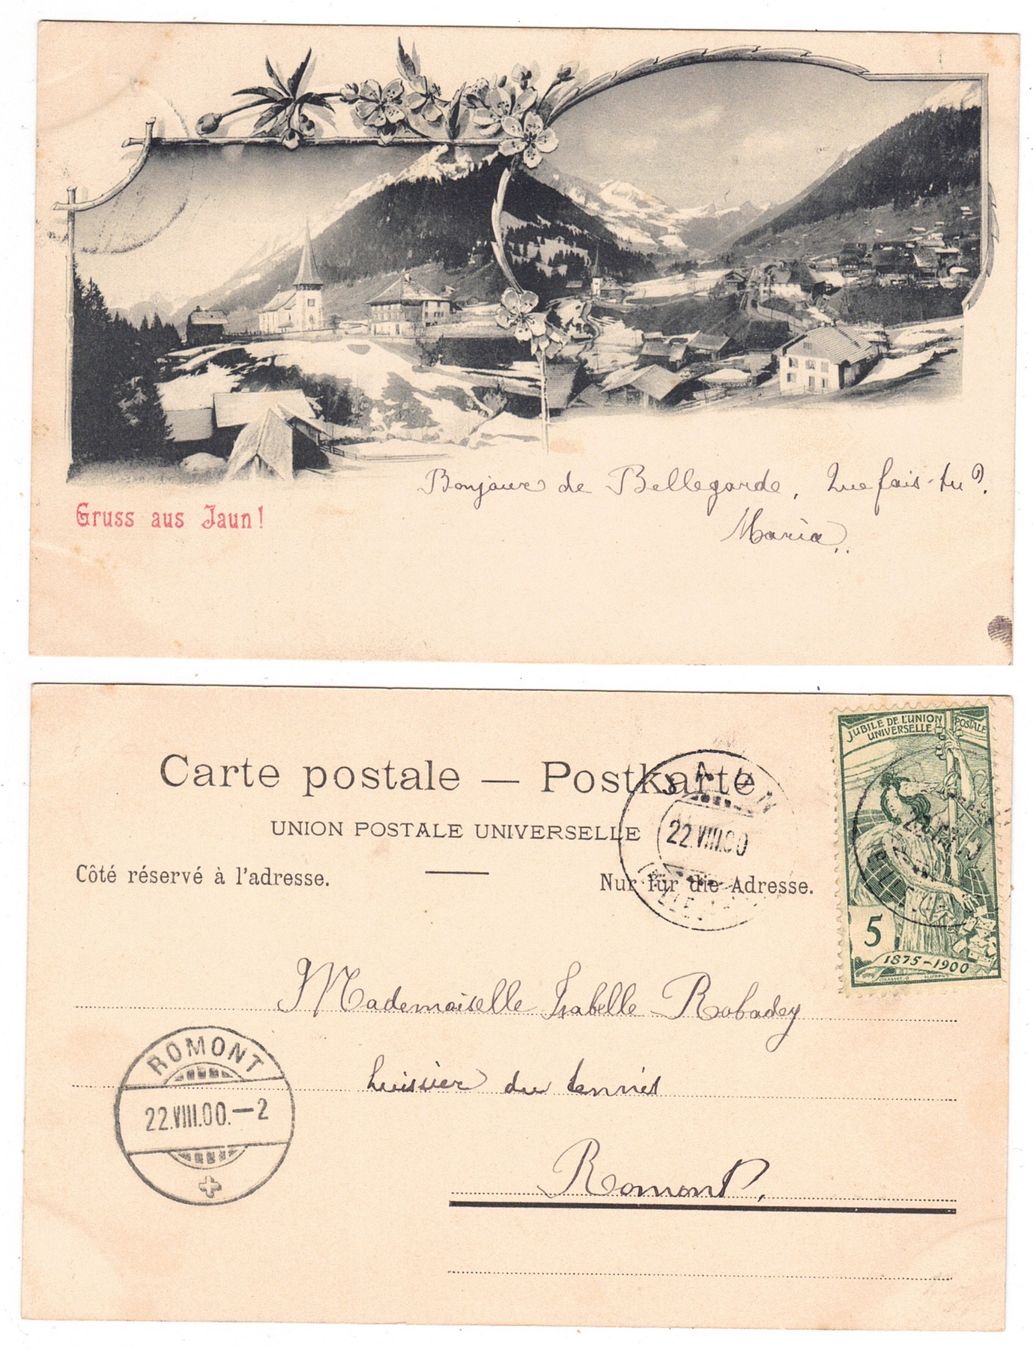 Gruss aus Jaun!
Bonjour de Bellegarde, Que fais-tu?
Maria..
Carte postale — Postkarte
UNION POSTALE UNIVERSELLE
Côté réservé à l'adresse.
Nur für die Adresse.
JAUN
22.VIII.00
JUBILÉ DE L'UNION POSTALE
UNIVERSELLE
5
1875-1900
Mademoiselle Isabelle Robadey
huissier du
Romont.
ROMONT
22.VIII.00.-2